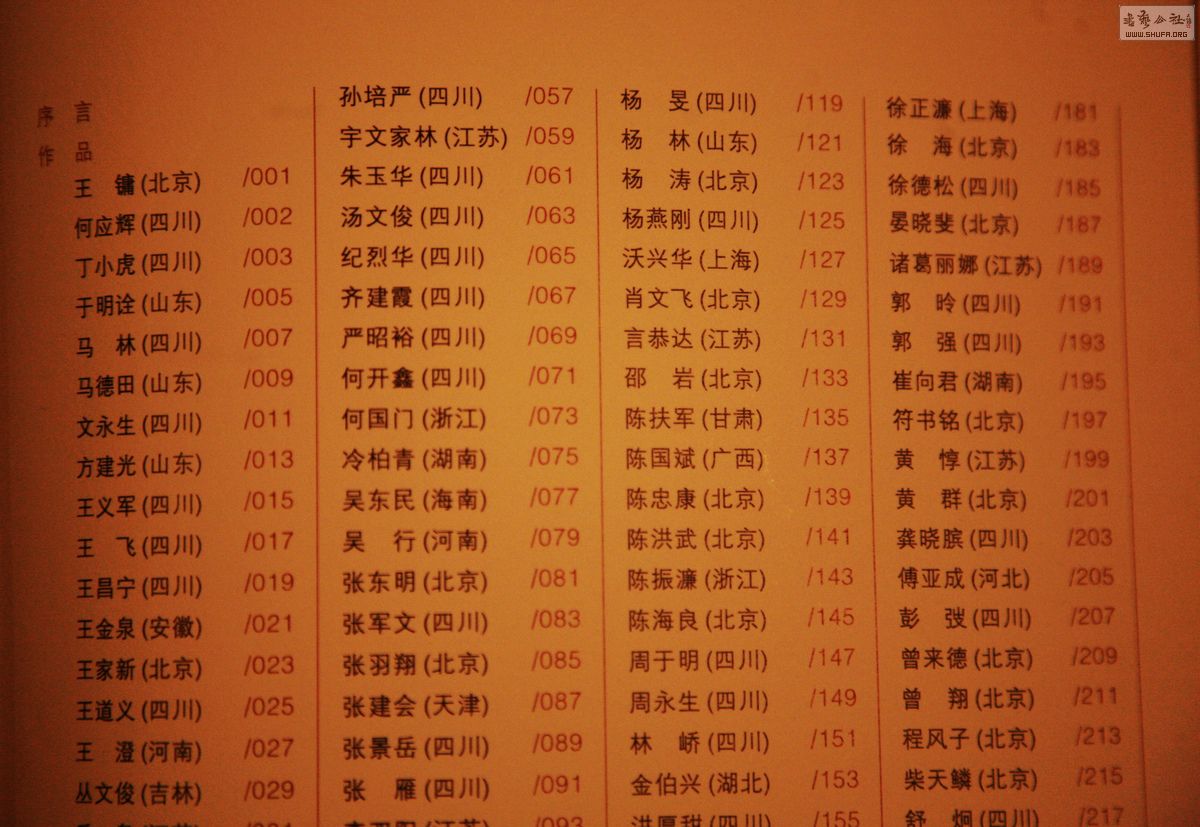 WWW.SHUFA.ORG
序 言
作 品
王 镛(北京) /001
何应辉(四川) /002
丁小虎(四川) /003
于明诠(山东) /005
马 林(四川) /007
马德田(山东) /009
文永生(四川) /011
方建光(山东) /013
王义军(四川) /015
王 飞(四川) /017
王昌宁(四川) /019
王金泉(安徽) /021
王家新(北京) /023
王道义(四川) /025
王 澄(河南) /027
丛文俊(吉林) /029
孙培严(四川) /057
宇文家林(江苏) /059
朱玉华(四川) /061
汤文俊(四川) /063
纪烈华(四川) /065
齐建霞(四川) /067
严昭裕(四川) /069
何开鑫(四川) /071
何国门(浙江) /073
冷柏青(湖南) /075
吴东民(海南) /077
吴 行(河南) /079
张东明(北京) /081
张军文(四川) /083
张羽翔(北京) /085
张建会(天津) /087
张景岳(四川) /089
张 雁(四川) /091
杨 旻(四川) /119
杨 林(山东) /121
杨 涛(北京) /123
杨燕刚(四川) /125
沃兴华(上海) /127
肖文飞(北京) /129
言恭达(江苏) /131
邵 岩(北京) /133
陈扶军(甘肃) /135
陈国斌(广西) /137
陈忠康(北京) /139
陈洪武(北京) /141
陈振濂(浙江) /143
陈海良(北京) /145
周于明(四川) /147
周永生(四川) /149
林 峤(四川) /151
金伯兴(湖北) /153
洪厚甜(四川) /155
徐正濂(上海) /181
徐 海(北京) /183
徐德松(四川) /185
晏晓斐(北京) /187
诸葛丽娜(江苏) /189
郭 昤(四川) /191
郭 强(四川) /193
崔向君(湖南) /195
符书铭(北京) /197
黄 惇(江苏) /199
黄 群(北京) /201
龚晓膑(四川) /203
傅亚成(河北) /205
彭 弢(四川) /207
曾来德(北京) /209
曾 翔(北京) /211
程风子(北京) /213
柴天鳞(北京) /215
舒 炯(四川) /217